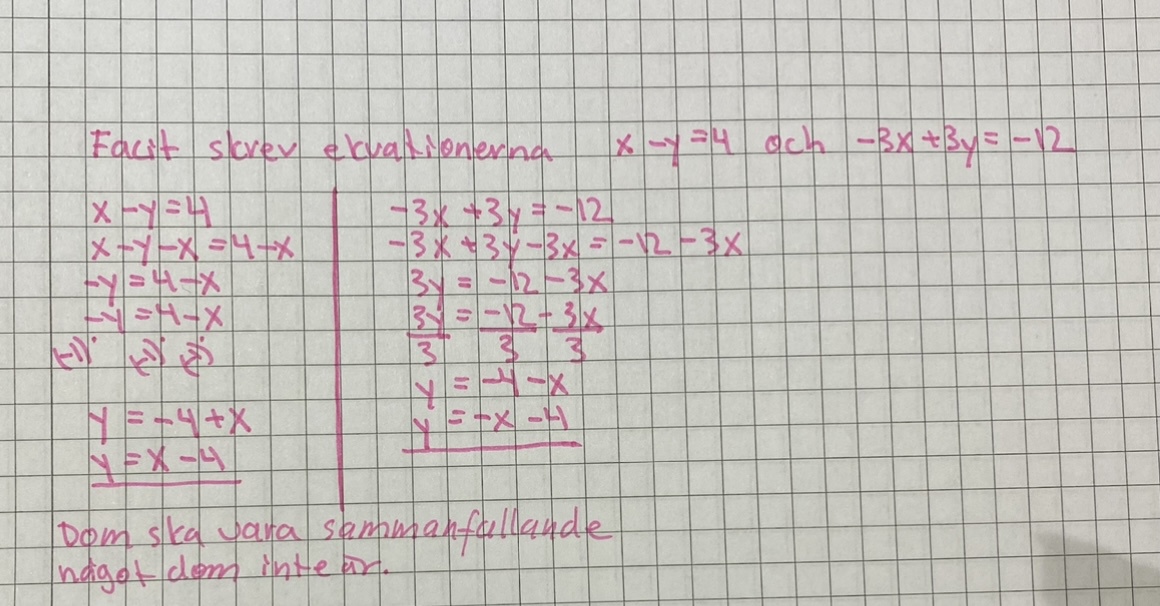 Facit skrev ekvationerna x - y = 4 och -3x + 3y = -12
x - y = 4
x - y - x = 4 - x
-y = 4 - x
-y = 4 - x
(-1)· (-1)· (-1)·
y = -4 + x
y = x - 4
-3x + 3y = -12
-3x + 3y - 3x = -12 - 3x
3y = -12 - 3x
3y = -12 - 3x
3 3 3
y = -4 - x
y = -x - 4
Dom ska vara sammanfallande
något dom inte är.